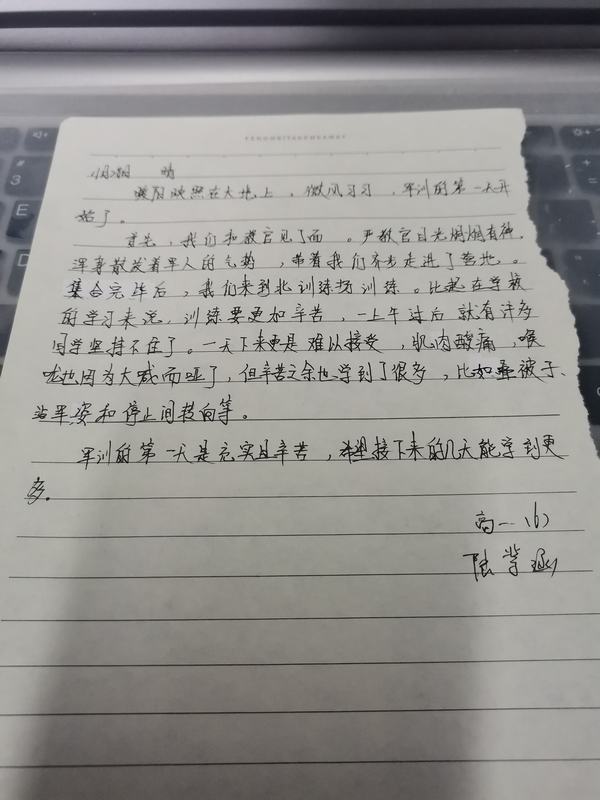 晴
暖阳映照在大地上，微风习习，军训的第一天开
始了。
首先，我们和教官见了面。严教官目光炯炯有神，
浑身散发着军人的气势，带着我们齐步走进了营地。
集合完毕后，我们来到北训练场训练。比起在学校
的学习来说，训练要更加辛苦，一上午过后就有许多
同学坚持不住了。一天下来更是难以接受，肌肉酸痛，喉
咙也因为大喊而哑了，但辛苦之余也学到了很多，比如叠被子、
站军姿和停止间转向等。
军训的第一天是充实且辛苦，希望接下来的几天能学到更
多。
高一（6）
陆